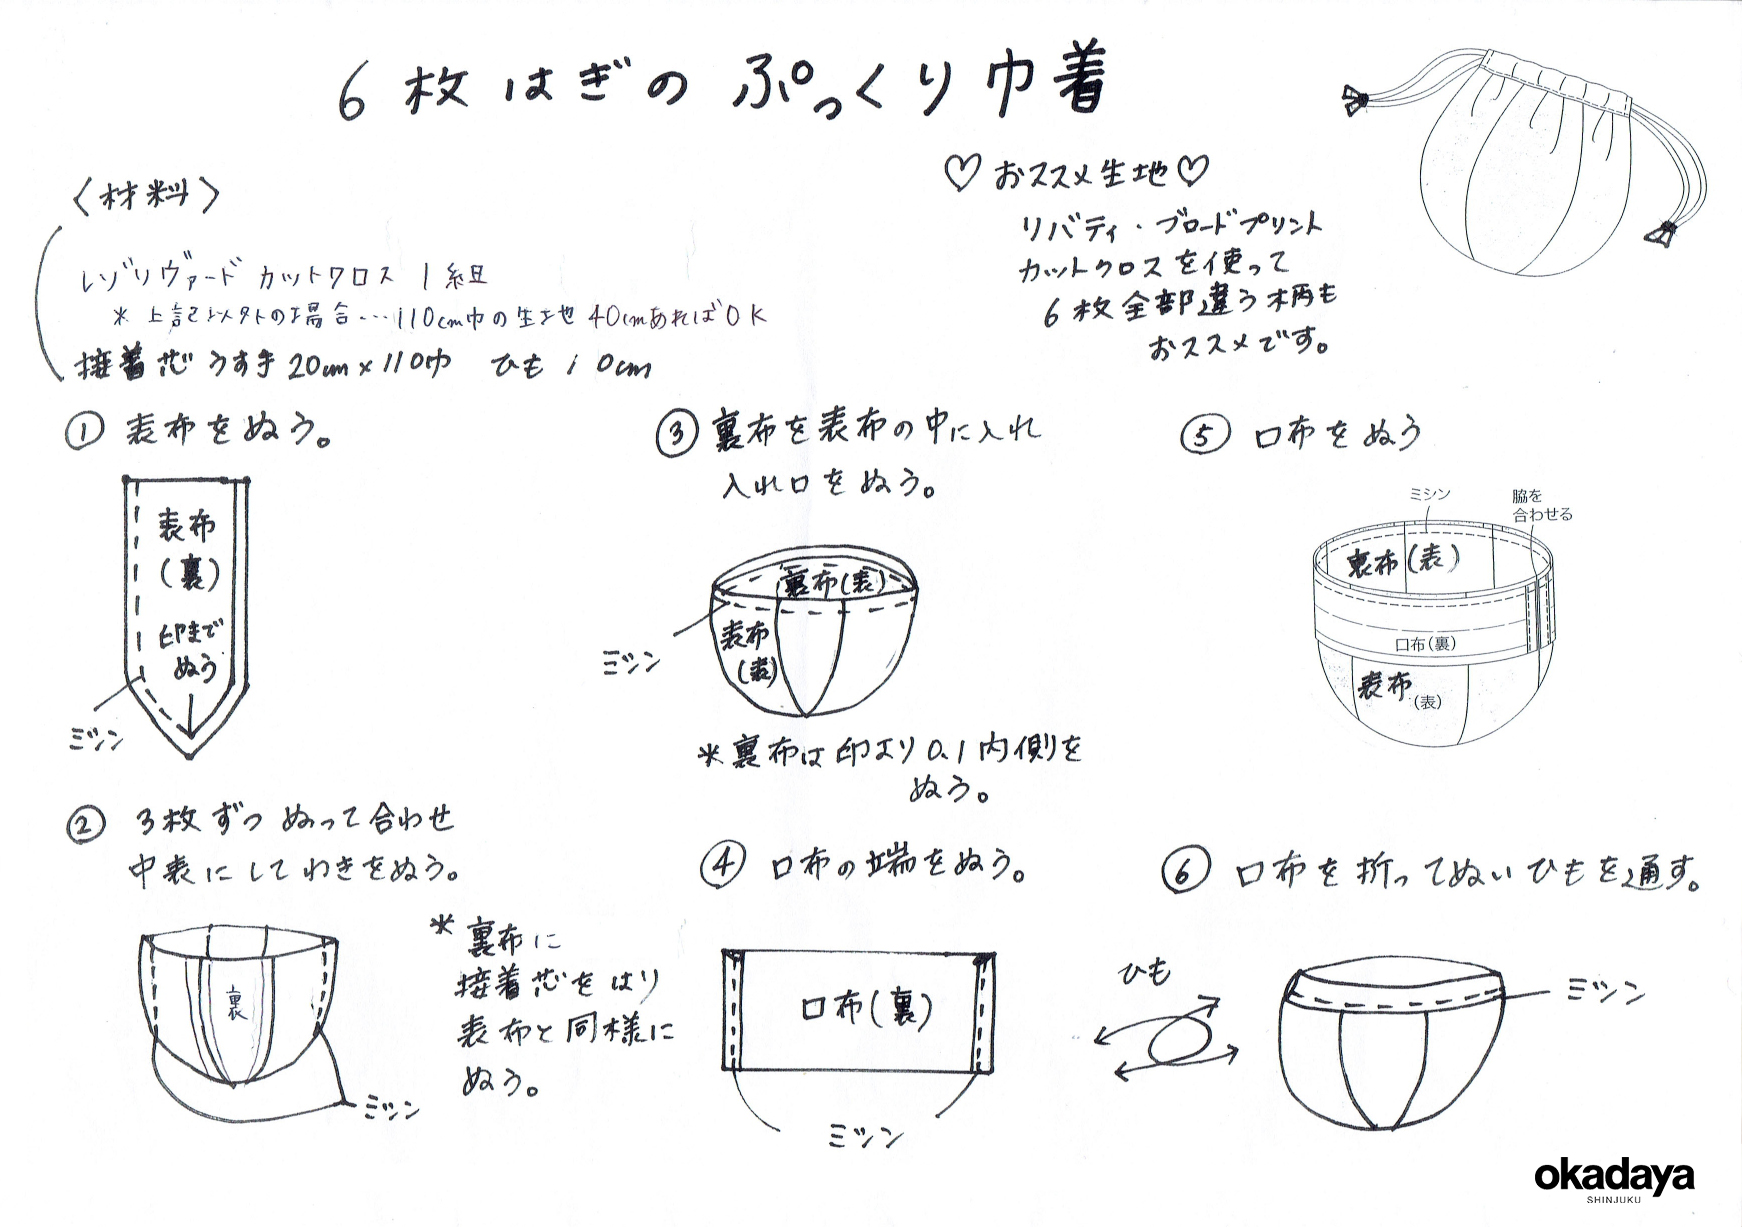 6枚はぎの ぷっくり巾着
〈材料〉
レゾリヴァード カットクロス 1組
* 上記以外の場合…110cm巾の生地 40cmあればOK
接着芯 うす手 20cm×110巾 ひも 10cm
♡おススメ生地♡
リバティ・ブロードプリント
カットクロスを使って
6枚全部違う柄も
おススメです。
① 表布をぬう。
表布
(裏)
印まで
ぬう
ミシン
② 3枚ずつ ぬって合わせ
中表にしてわきをぬう。
裏
ミシン
* 裏布に
接着芯をはり
表布と同様に
ぬう。
③ 裏布を表布の中に入れ
入れ口をぬう。
裏布(表)
表布
(表)
ミシン
*裏布は印より0.1内側を
ぬう。
④ 口布の端をぬう。
口布(裏)
ミシン
⑤ 口布をぬう
ミシン
脇を
合わせる
裏布(表)
口布(裏)
表布(表)
⑥ 口布を折ってぬいひもを通す。
ひも
ミシン
okadaya
SHINJUKU